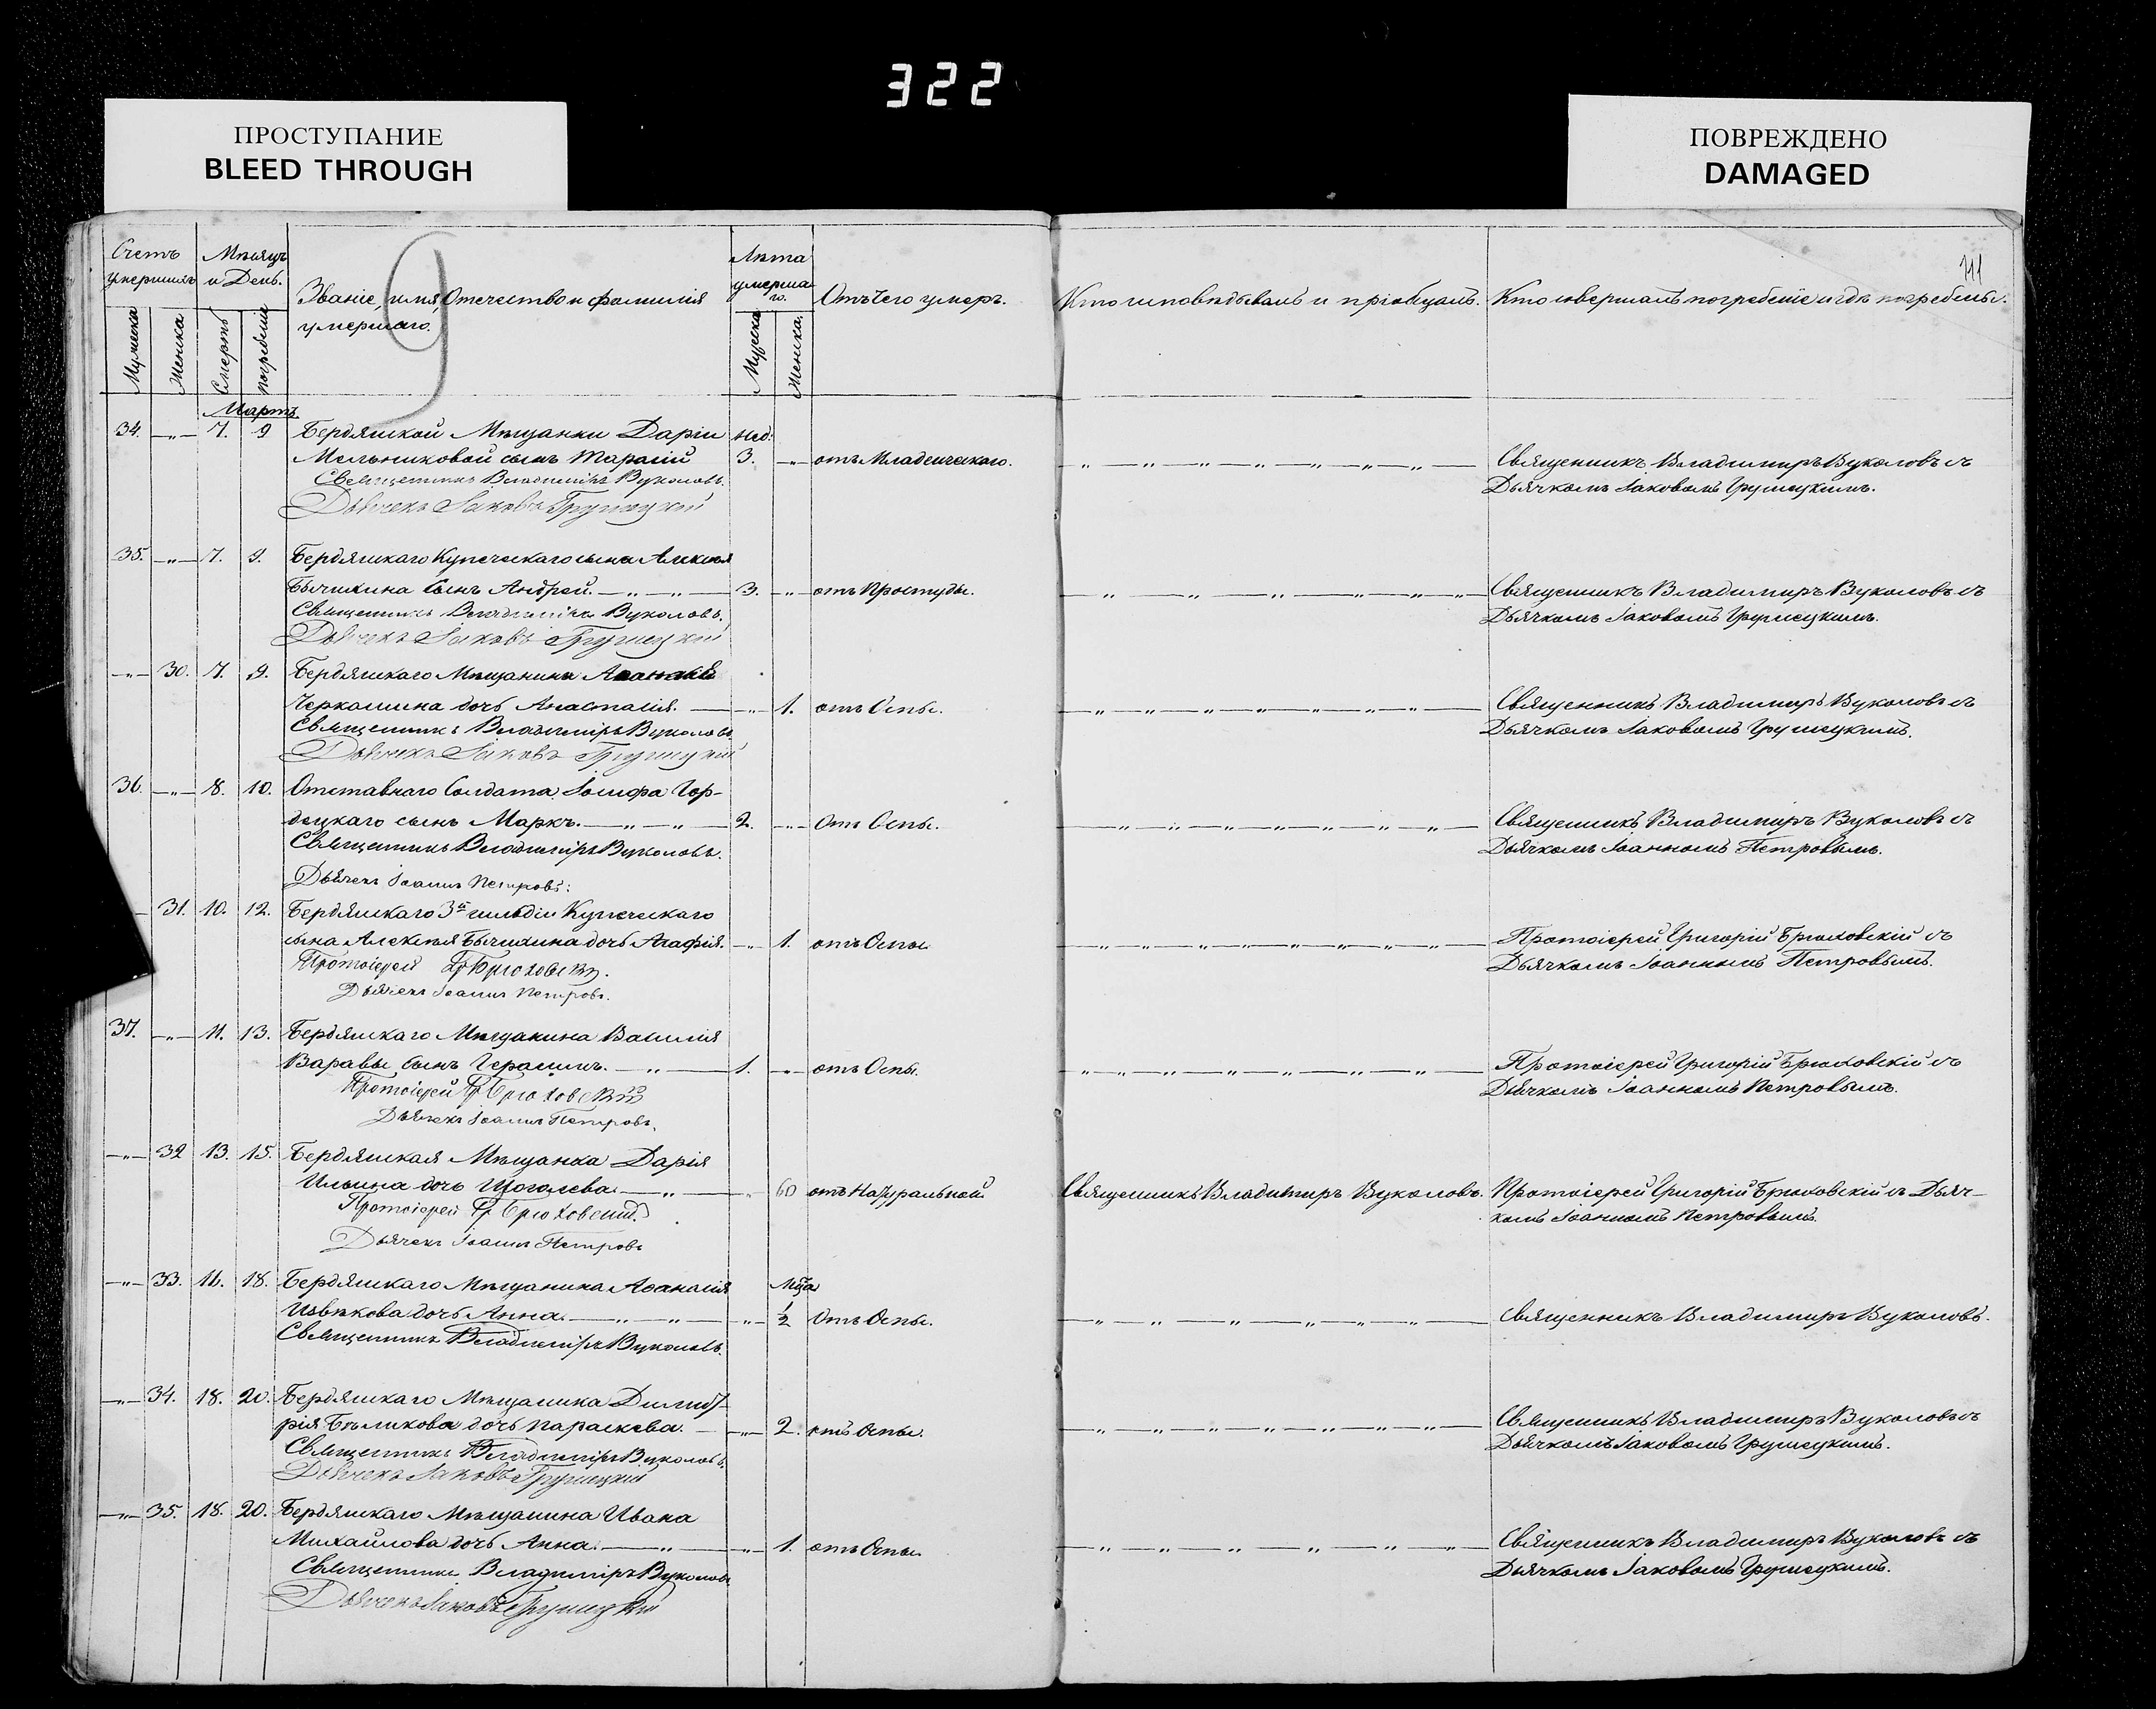 322
ПРОСТУПАНИЕ
BLEED THROUGH
ПОВРЕЖДЕНО
DAMAGED
111
Счетъ умершихъ
Мѣсяцъ и День.
Званіе, имя, Отечество и фамилія умершаго.
Лѣта умершаго.
Отъ Чего умеръ.
Кто исповѣдывалъ и пріобщалъ.
Кто совершалъ погребеніе и гдѣ погребены.
Мужеска
Женска
Смерть
погребенія
Мужеска
Женска.
Мартъ
34. —"— 7. 9 Бердянской Мѣщанки Даріи нед:
Мельниковой сынъ Тарасій 3. —"— отъ Младенческаго. Священникъ Владимиръ Вуколовъ съ
Священникъ Владиміръ Вуколовъ. Дьячкомъ Іаковомъ Грушецкимъ.
Дьячекъ Іаковъ Грушецкій
35. —"— 7. 9. Бердянскаго Купеческаго сына Алексія
Бычихина сынъ Андрей. 3. —"— отъ Простуды. Священникъ Владимиръ Вуколовъ съ
Священникъ Владиміръ Вуколовъ. Дьячкомъ Іаковомъ Грушецкимъ.
Дьячекъ Іаковъ Грушецкій
—"— 30. 7. 9. Бердянскаго Мѣщанина
Черкашина дочь Анастасія. —"— 1. отъ Оспы. Священникъ Владимиръ Вуколовъ съ
Священникъ Владиміръ Вуколовъ Дьячкомъ Іаковомъ Грушецкимъ.
Дьячекъ Іаковъ Грушецкій
36. —"— 8. 10. Отставнаго Солдата Іосифа Гор-
децкаго сынъ Маркъ. 2. —"— Отъ Оспы. Священникъ Владимиръ Вуколовъ съ
Священникъ Владиміръ Вуколовъ. Дьячкомъ Іоанномъ Петровымъ.
Дьячекъ Іоаннъ Петровъ:
— 31. 10. 12. Бердянскаго 3й гильдіи Купеческаго
сына Алексѣя Бычихина дочь Агафія. —"— 1. отъ Оспы Протоіерей Григорій Брюховскій съ
Протоіерей Гр Брюховскій. Дьячкомъ Іоанномъ Петровымъ.
Дьячекъ Іоаннъ Петровъ.
37. —"— 11. 13. Бердянскаго Мѣщанина Василія
Варавы сынъ Герасимъ. 1. —"— отъ Оспы. Протоіерей Григорій Брюховскій съ
Протоіерей Гр Брюховскій Дьячкомъ Іоанномъ Петровымъ.
Дьячекъ Іоаннъ Петровъ.
—"— 32 13. 15. Бердянская Мѣщанка Дарія
Ильина дочь Щоголева. —"— 60 отъ Натуральной Священникъ Владимиръ Вуколовъ. Протоіерей Григорій Брюховскій съ Дьяч-
Протоіерей Гр Брюховскій. комъ Іоанномъ Петровымъ.
Дьячекъ Іоаннъ Петровъ
—"— 33. 16. 18. Бердянскаго Мѣщанина Аѳанасія Мца
Извѣкова дочь Анна. —"— ½ Отъ Оспы. Священникъ Владимиръ Вуколовъ.
Священникъ Владиміръ Вуколовъ.
—"— 34. 18. 20. Бердянскаго Мѣщанина Димит-
рія Бѣликова дочь Параскева. —"— 2. отъ Оспы. Священникъ Владимиръ Вуколовъ съ
Священникъ Владиміръ Вуколовъ. Дьячкомъ Іаковомъ Грушецкимъ.
Дьячекъ Іаковъ Грушецкій
—"— 35. 18. 20. Бердянскаго Мѣщанина Ивана
Михайлова дочь Анна. —"— 1. отъ Оспы. Священникъ Владимиръ Вуколовъ съ
Священникъ Владиміръ Вуколовъ Дьячкомъ Іаковомъ Грушецкимъ.
Дьячекъ Іаковъ Грушецкій